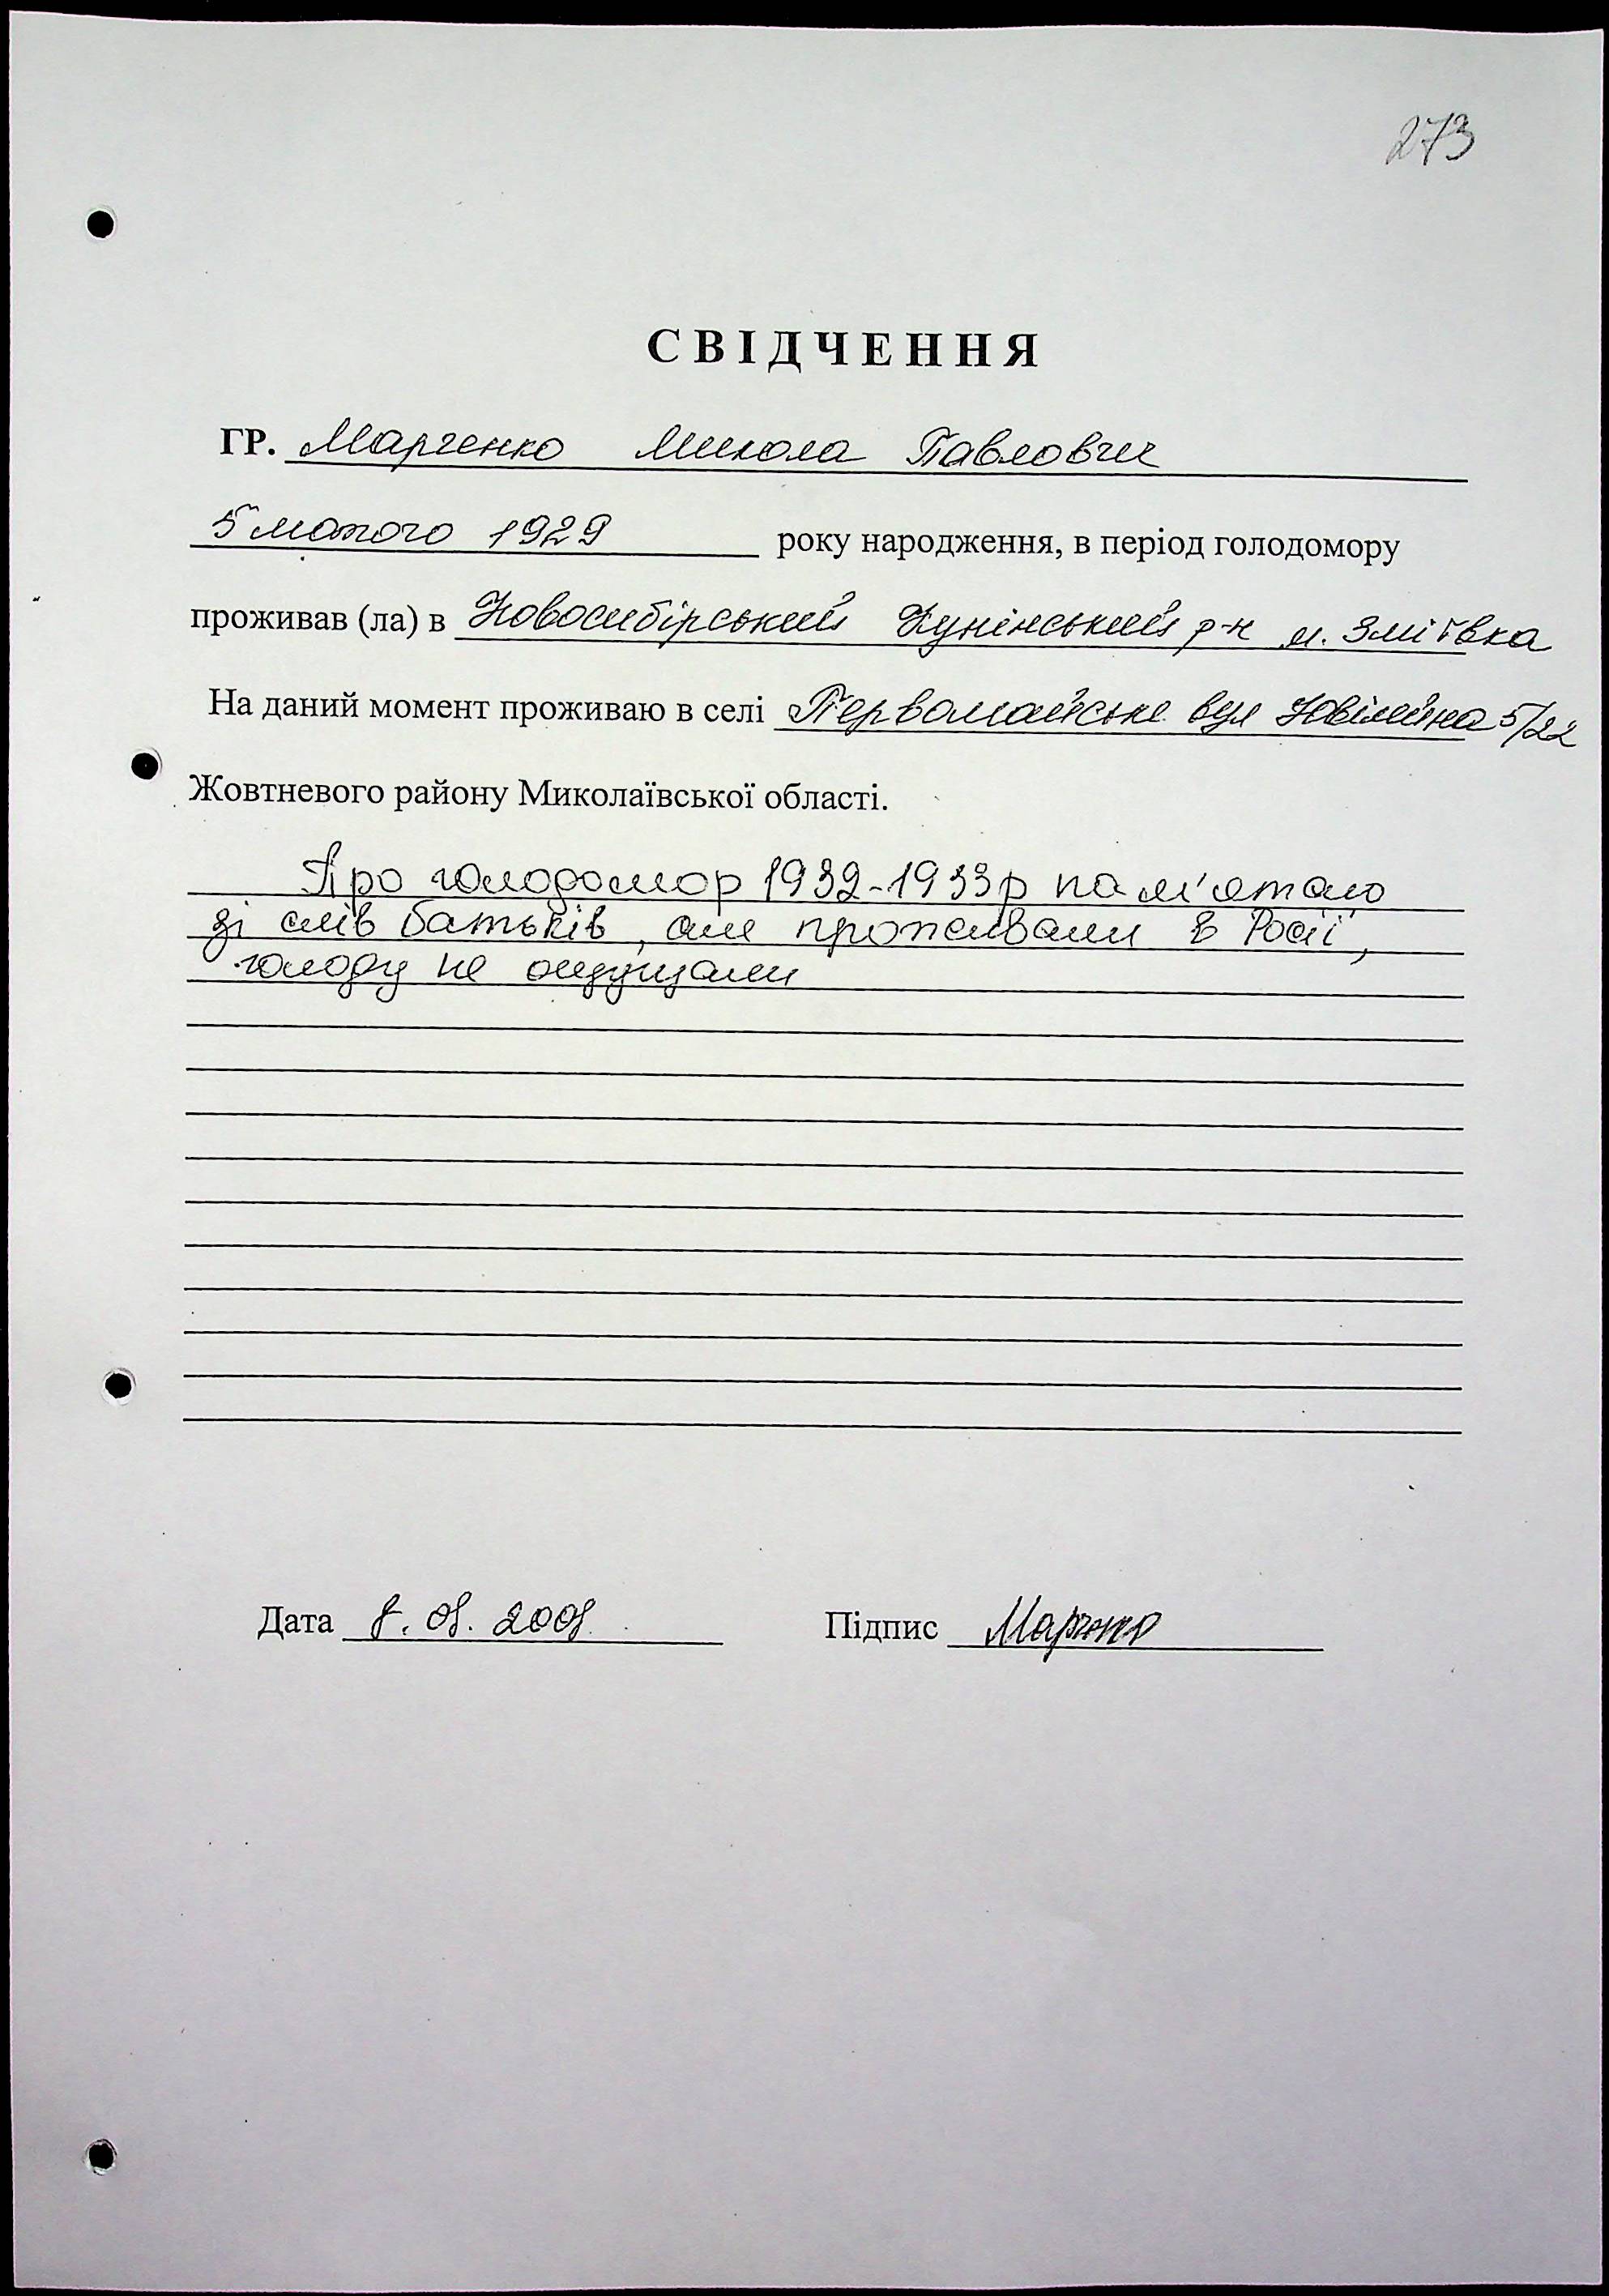 273
СВІДЧЕННЯ
ГР. Марченко Микола Павлович
5 лютого 1929 року народження, в період голодомору
проживав (ла) в Новосибірський Купінський р-н м. Зміївка
На даний момент проживаю в селі Первомайське вул Ювілейна 5/22
Жовтневого району Миколаївської області.
Про голодомор 1932-1933р пам'ятаю
зі слів батьків, але проживали в Росії,
голоду не ощущали
Дата 8.08.2008 Підпис Марченко